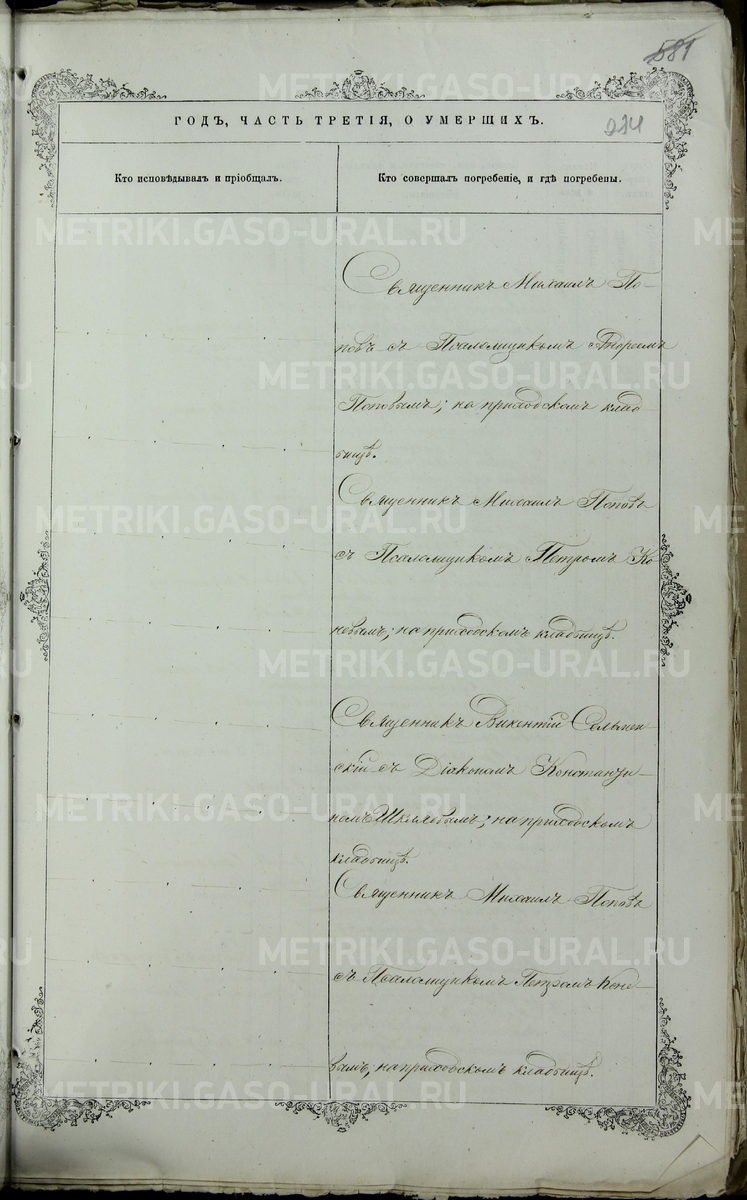 581
274
ГОДЪ, ЧАСТЬ ТРЕТІЯ, О УМЕРШИХЪ.
Кто исповѣдывалъ и пріобщалъ.
Кто совершалъ погребеніе, и гдѣ погребены.
Священникъ Михаилъ По-
повъ съ Псаломщикомъ Андреемъ
Поповымъ; на приходскомъ клад
бищѣ.
Священникъ Михаилъ Поповъ
съ Псаломщикомъ Петромъ Ко
невымъ; на приходскомъ кладбищѣ.
Священникъ Викентій Сельмен
скій съ Діакономъ Константи-
номъ Шкляевымъ; на приходскомъ
кладбищѣ.
Священникъ Михаилъ Поповъ
съ Псаломщикомъ Петромъ Коне-
вымъ, на приходскомъ кладбищѣ.
METRIKI.GASO-URAL.RU